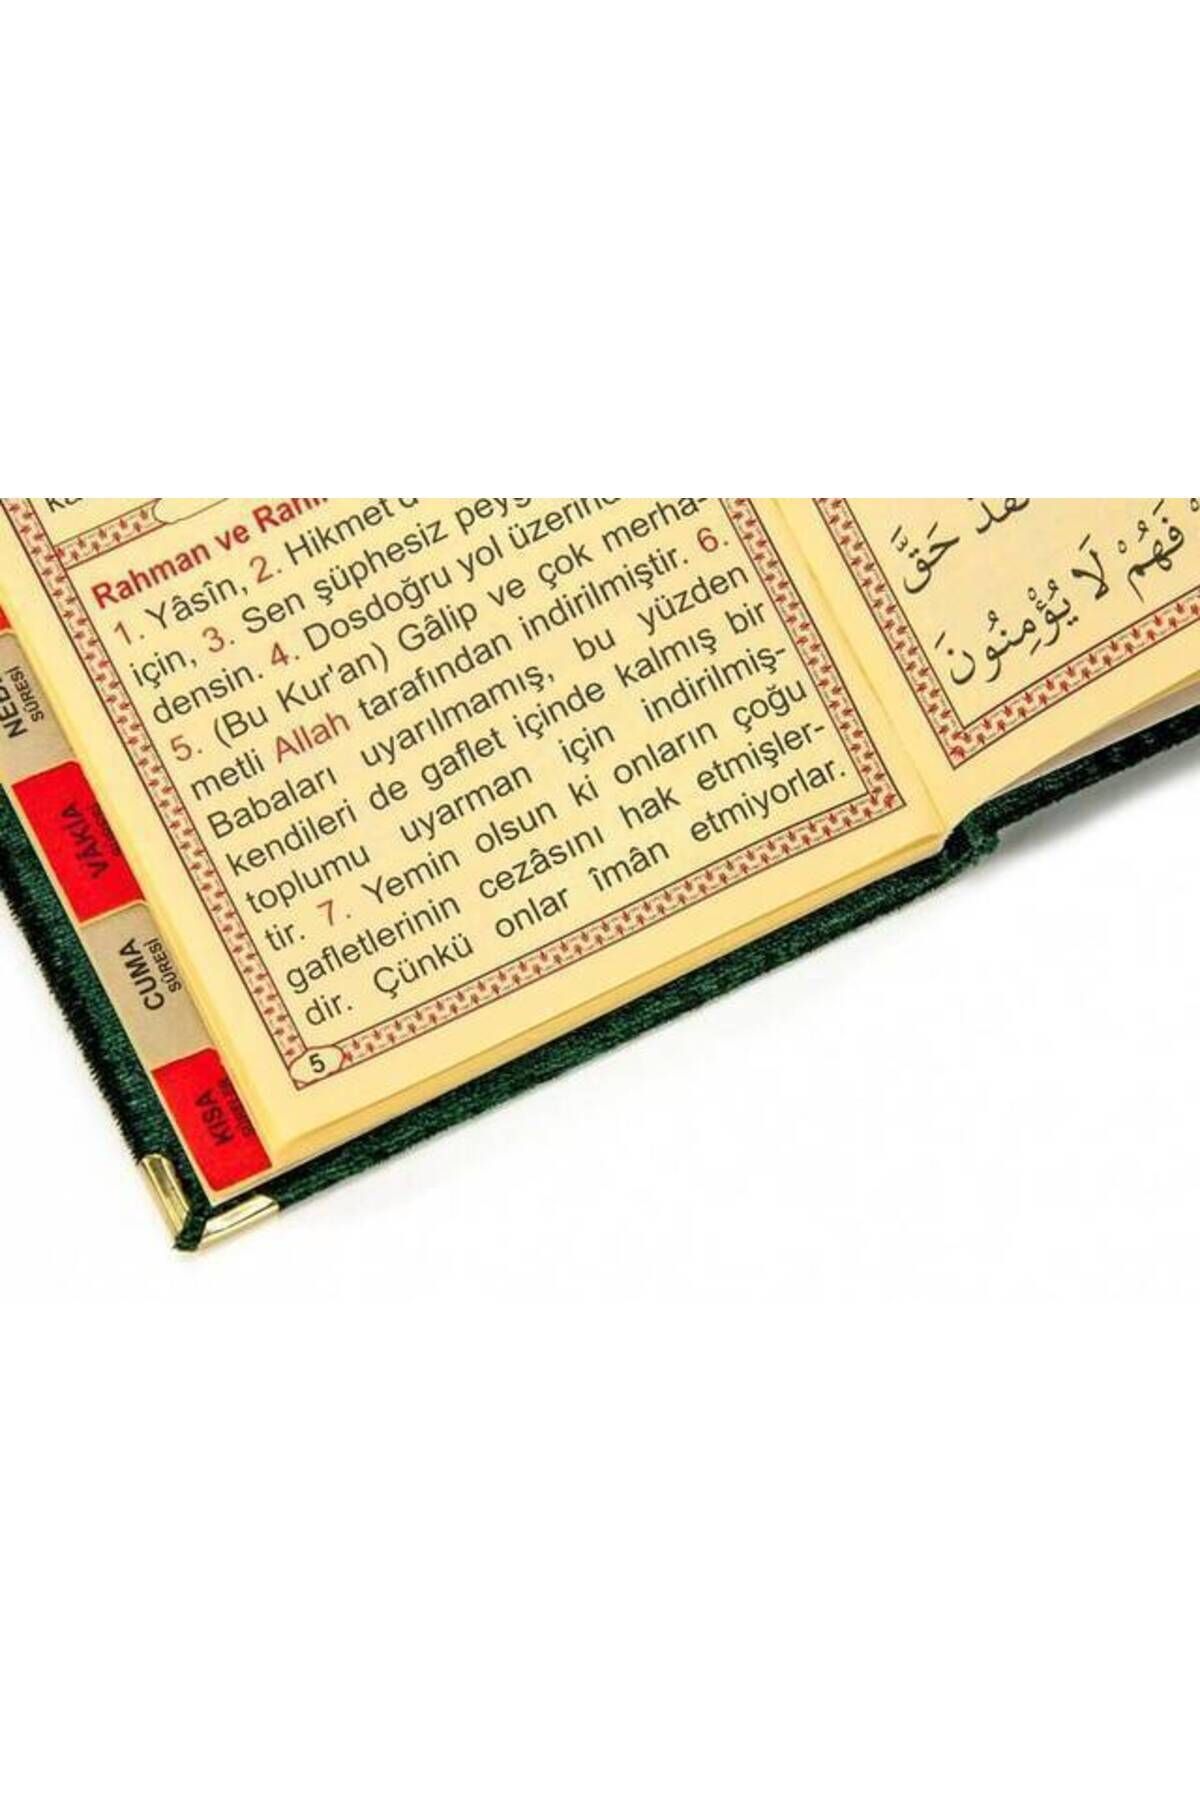 Rahman ve
1. Yâsîn, 2. Hikmet
için, 3. Sen şüphesiz
densin. 4. Dosdoğru yol
5. (Bu Kur'an) Gâlip ve çok merha-
metli Allah tarafından indirilmiştir. 6.
Babaları uyarılmamış, bu yüzden
kendileri de gaflet içinde kalmış bir
toplumu uyarman için indirilmiş-
tir. 7. Yemin olsun ki onların çoğu
gafletlerinin cezâsını hak etmişler-
dir. Çünkü onlar îmân etmiyorlar.
5
SÛRESİ
VÂKIA
CUMA
SÛRESİ
KISA
حَقَّ
فَهُمْ لَا يُؤْمِنُونَ